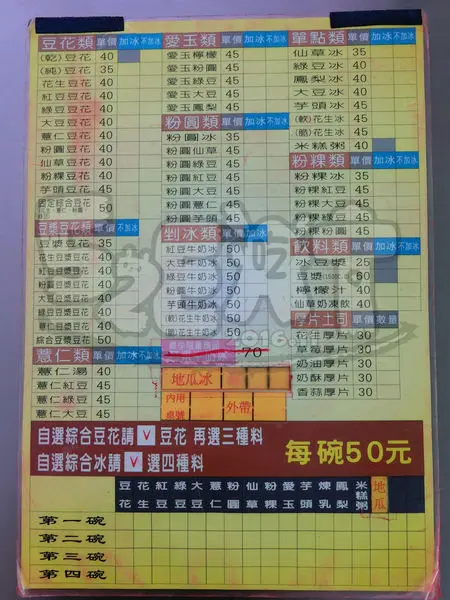 豆花類 單價 加冰 不加冰
(乾)豆花 40
(純)豆花 35
花生豆花 40
紅豆豆花 40
綠豆豆花 40
大豆豆花 40
薏仁豆花 40
粉圓豆花 40
仙草豆花 40
粉粿豆花 40
芋頭豆花 45
固定綜合豆花 50
豆漿豆花類 單價 加冰 不加冰
豆漿豆花 35
花生豆漿豆花 40
紅豆豆漿豆花 40
綠豆豆漿豆花 40
大豆豆漿豆花 40
粉圓豆漿豆花 40
綠豆豆漿豆花 40
薏仁豆漿豆花 40
綜合豆漿豆花 50
薏仁類 單價 加冰 不加冰
薏仁湯 40
薏仁紅豆 45
薏仁綠豆 45
薏仁大豆 45
愛玉類 單價 加冰 不加冰
愛玉檸檬 45
愛玉粉圓 45
愛玉綠豆 45
愛玉大豆 45
愛玉鳳梨 45
粉圓類 單價 加冰 不加冰
粉圓冰 35
粉圓仙草 45
粉圓綠豆 45
粉圓紅豆 45
粉圓大豆 45
粉圓薏仁 45
粉圓芋頭 45
剉冰類 單價 加冰
紅豆牛奶冰 50
大豆牛奶冰 50
綠豆牛奶冰 50
粉圓牛奶冰 50
芋頭牛奶冰 50
(軟)花生牛奶冰 50
(脆)花生牛奶冰 50
70
地瓜冰
內用 桌號 外帶
單點類 單價 加冰 不加冰
仙草冰 35
綠豆冰 40
鳳梨冰 40
大豆冰 40
芋頭冰 45
(軟)花生冰 45
(脆)花生冰 45
米糕粥 40
粉粿類 單價 加冰 不加冰
粉粿冰 35
粉粿紅豆 45
粉粿大豆 45
粉粿綠豆 45
粉粿粉圓 45
飲料類 單價 加冰 不加冰
冰豆漿 25
豆漿(1500cc) 60
檸檬汁 40
仙草奶凍飲 40
厚片土司 單價 數量
花生厚片 30
草莓厚片 30
奶油厚片 30
奶酥厚片 30
香蒜厚片 30
自選綜合豆花請 V 豆花 再選三種料
自選綜合冰請 V 選四種料
每碗50元
豆花 花生 紅豆 綠豆 大豆 薏仁 粉圓 仙草 粉粿 愛玉 芋頭 煉乳 鳳梨 米糕粥 地瓜
第一碗
第二碗
第三碗
第四碗